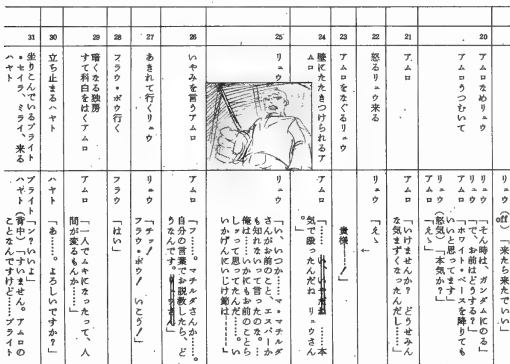 リュウ off)「来たら来たでいい」
20
アムロなめリュウ
リュウ「そん時は、ガンダムにのる」
で、お前はどうする?」
アムロうつむいて
アムロ「ホワイト・ベースを降りても
いいと思ってます」
リュウ(怒気)「本気か?」
アムロ「えゝ」
21
アムロ
アムロ「いけませんか? どうせみん
な気まずくなったんだし……」
22
怒るリュウ来る
リュウ「えゝ
23
アムロをなぐるリュウ
貴様――!」
24
壁にたたきつけられるア
ムロ
アムロ「…… ……本
気で殴ったんだね リュウさん
。」
25
リュウ
リュウ「い、いつか……マ、マチルダ
さんがお前のこと、エスパーか
も知れないって言ったのな。…
俺は……いかにもお前のことら
しゝって思ってたんだ……。い
いかげんにいじけ節は……!」
26
いやみを言うアムロ
アムロ「フ……。マチルダさんか……。
自分の言葉でお説教したら、ど
うなんです。
27
あきれて行くリュウ
リュウ「チッ!
フラウ・ボウ! いこう!」
28
フラウ・ボウ行く
フラウ「はい」
29
暗くなる独房
すて科白をはくアムロ
アムロ「一人でムキになったって、人
間が変るもんか……」
30
立ち止まるハヤト
ハヤト「あ……よろしいですか?」
31
坐りこんでいるブライト
・セイラ、ミライ、来る
ハヤト
ブライト「ン?いいよ」
ハヤト(背中)「すいません。アムロの
ことなんですけど……ブライト